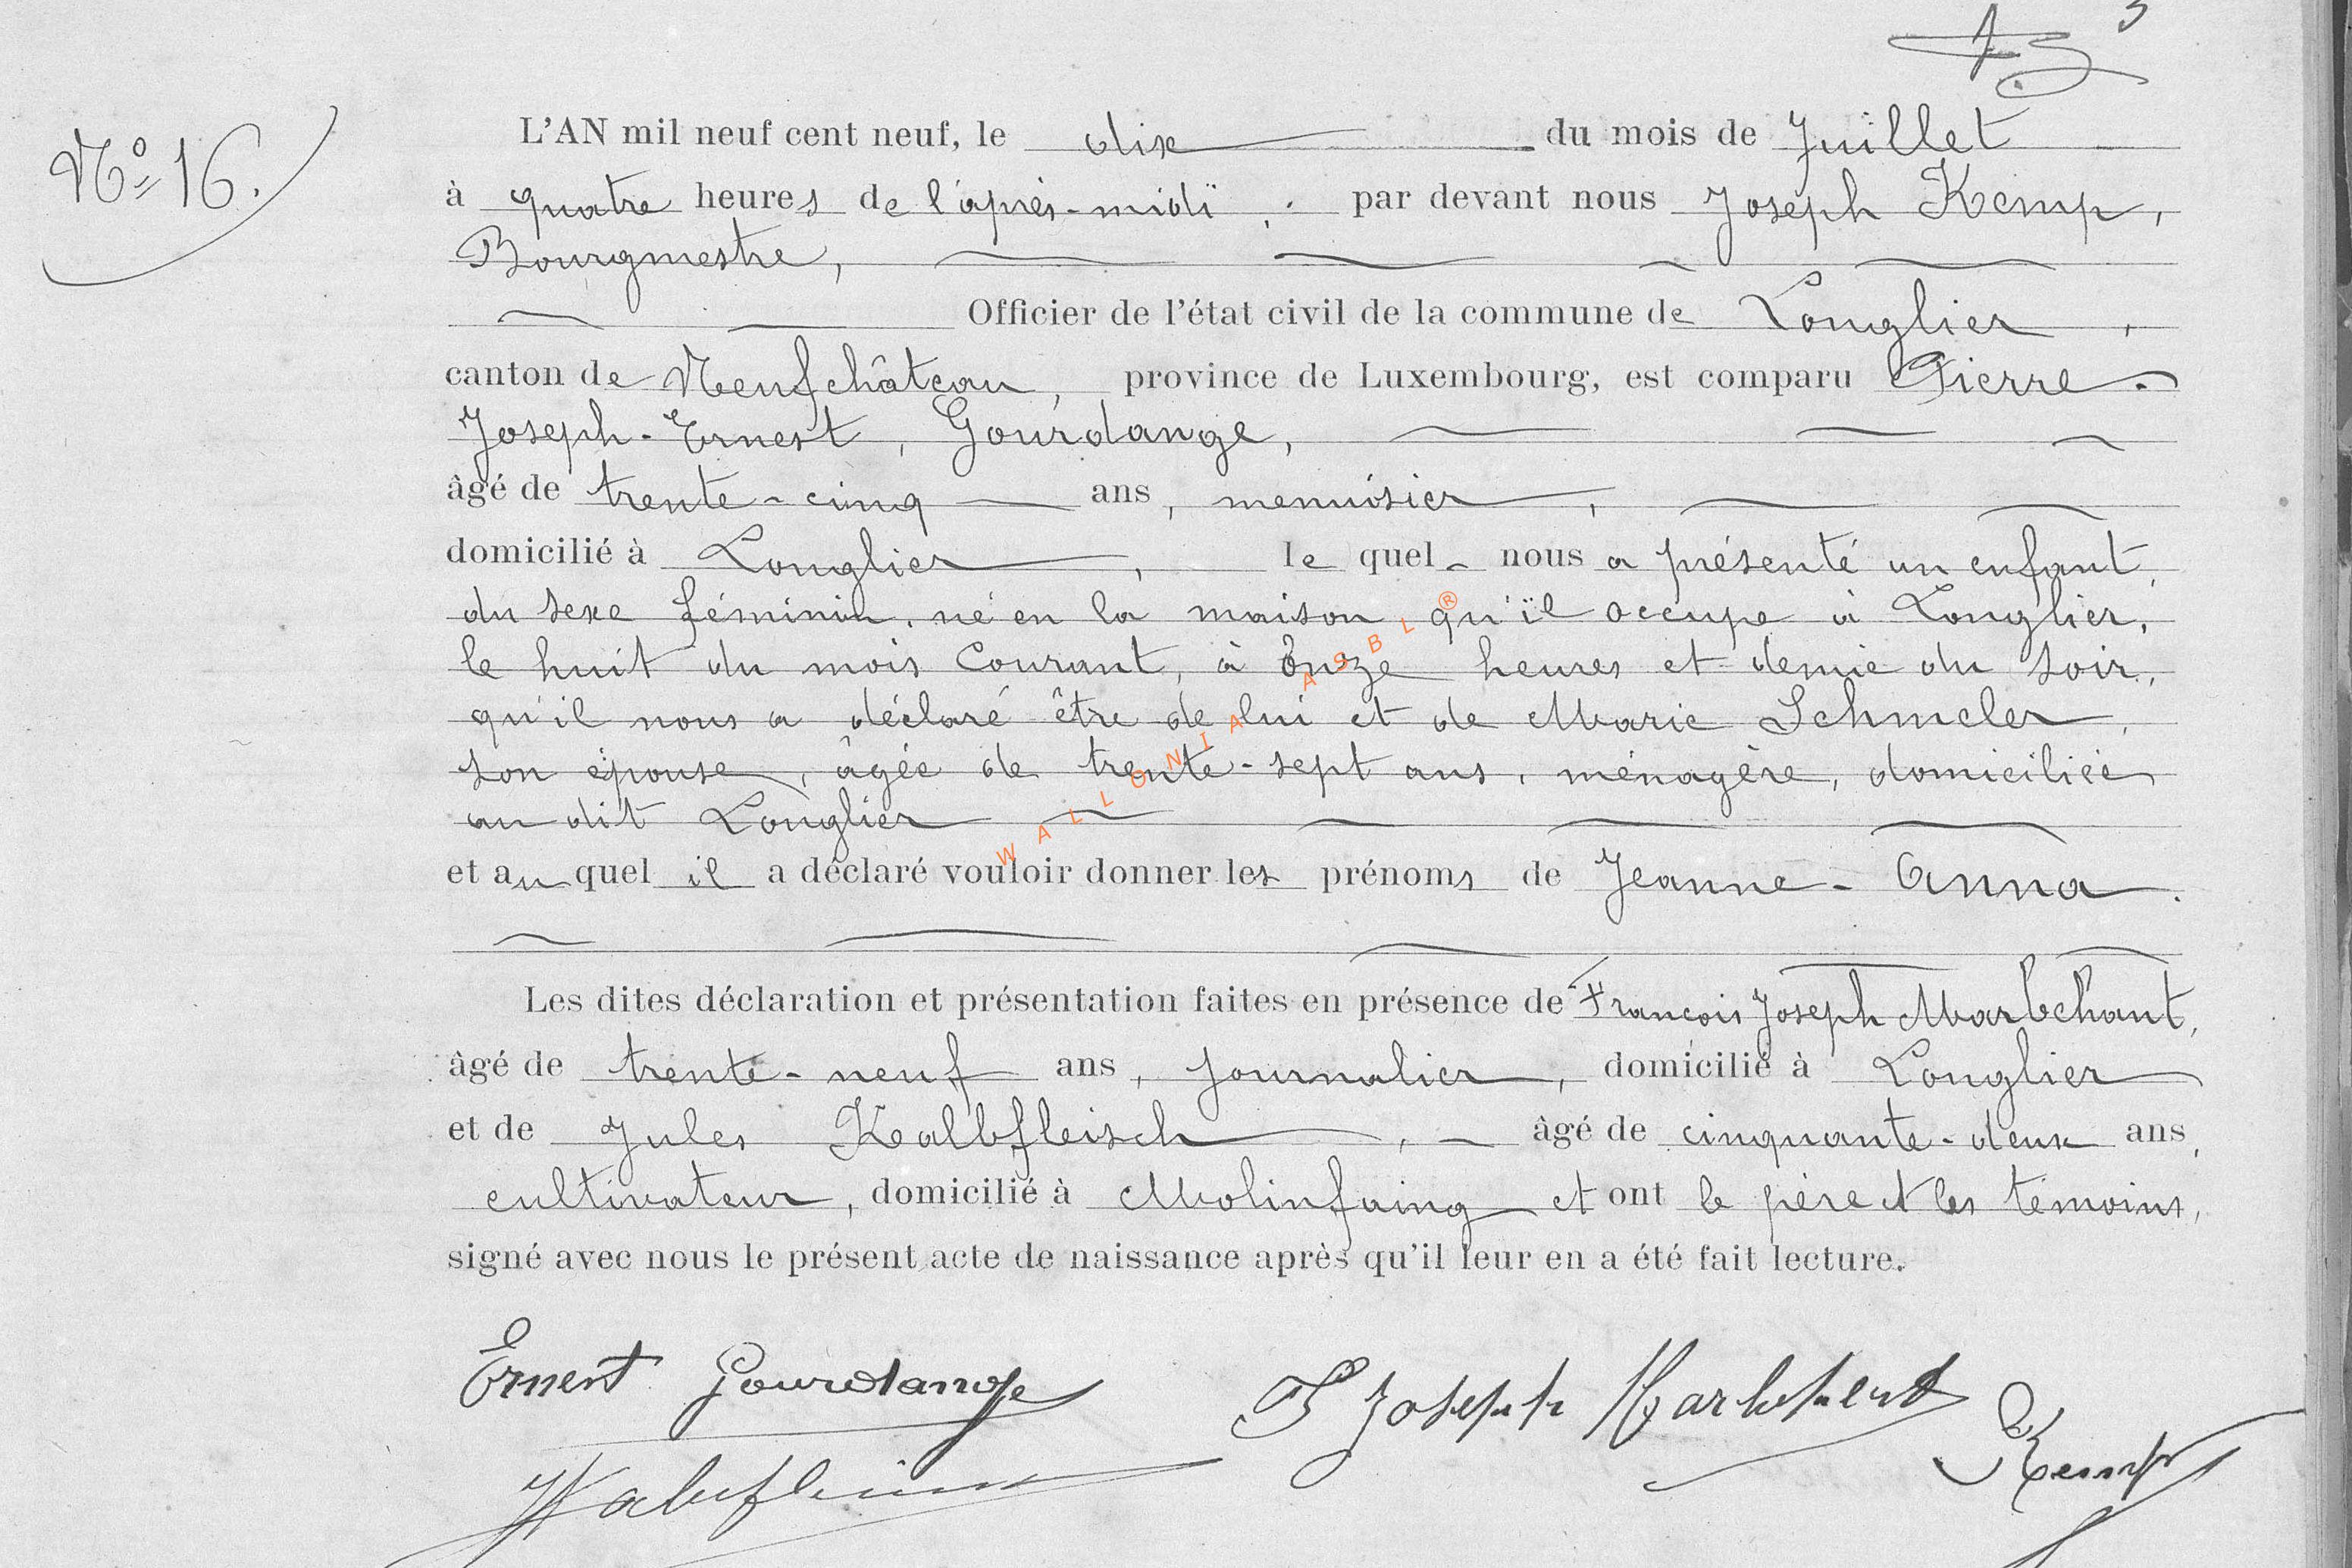 Nº 16.
L'AN mil neuf cent neuf, le dix du mois de Juillet
à quatre heures de l'après-midi, par devant nous Joseph Kemp,
Bourgmestre,
Officier de l'état civil de la commune de Longlier,
canton de Neufchâteau, province de Luxembourg, est comparu Pierre-
Joseph-Ernest, Gourdange,
âgé de trente-cinq ans, menuisier,
domicilié à Longlier, le quel nous a présenté un enfant,
du sexe féminin, né en la maison qu'il occupe à Longlier,
le huit du mois courant, à onze heures et demie du soir,
qu'il nous a déclaré être de lui et de Marie Schmeler,
son épouse, âgée de trente-sept ans, ménagère, domiciliée
au dit Longlier
et au quel il a déclaré vouloir donner les prénoms de Jeanne-Anna.
Les dites déclaration et présentation faites en présence de François Joseph Marbehant,
âgé de trente-neuf ans, journalier, domicilié à Longlier
et de Jules Kalbfleisch, âgé de cinquante-deux ans,
cultivateur, domicilié à Molinfaing et ont le père et les témoins,
signé avec nous le présent acte de naissance après qu'il leur en a été fait lecture.
Ernest Gourdange
F Joseph Marbehent
Kemp
WALLONIA ASBL ®